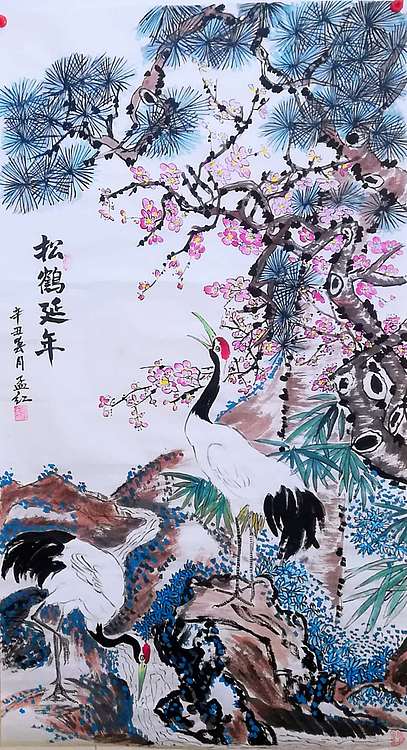 松鶴延年
辛丑 月 孟红